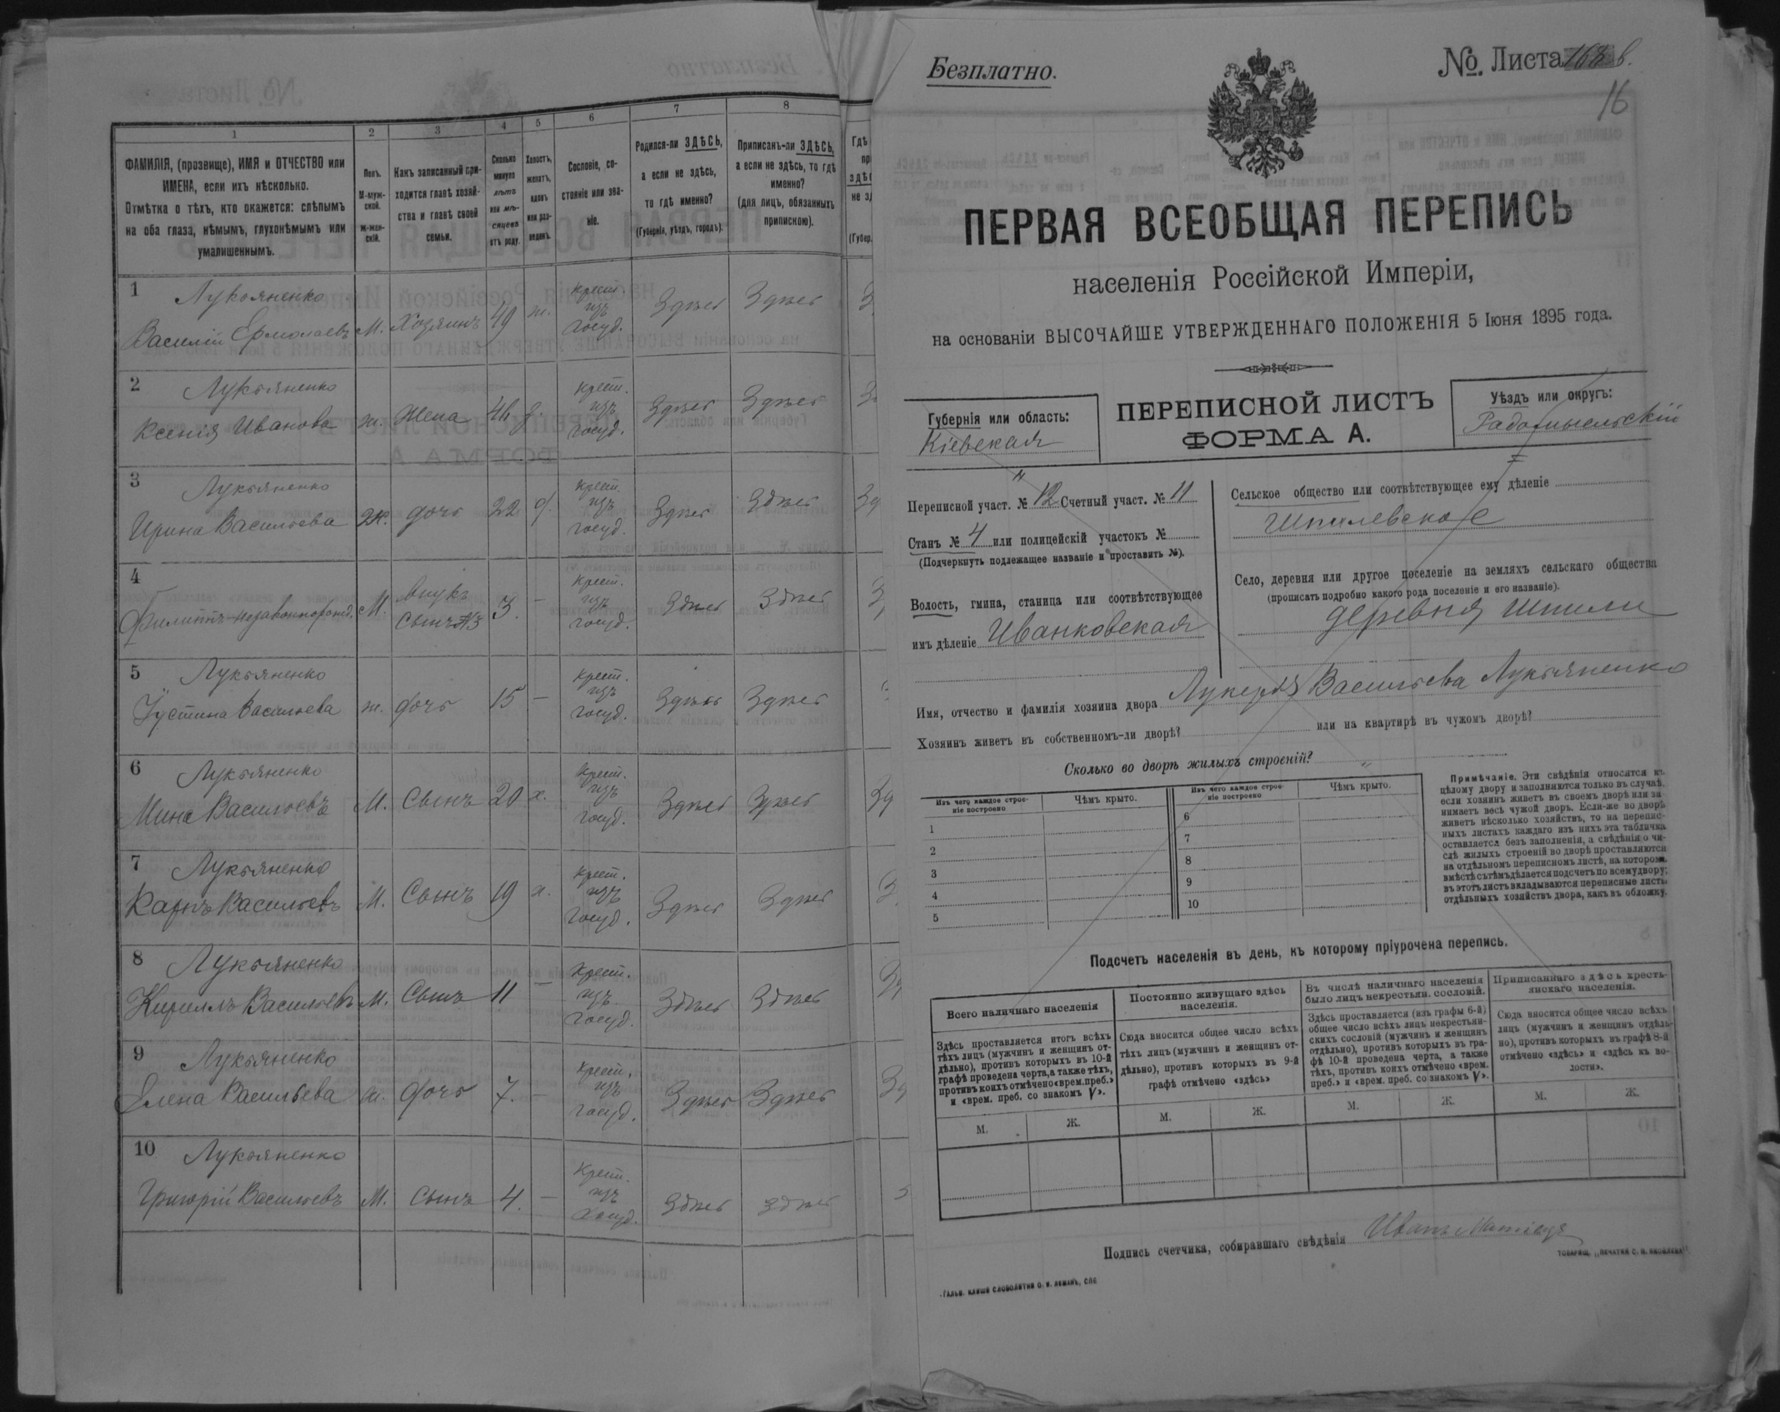 1
2
3
4
5
6
7
8
ФАМИЛІЯ, (прозвище), ИМЯ и ОТЧЕСТВО или
ИМЕНА, если ихъ нѣсколько.
Отмѣтка о тѣхъ, кто окажется: слѣпымъ
на оба глаза, нѣмымъ, глухонѣмымъ или
умалишеннымъ.
Полъ.
М-муж-
ской.
Ж-жен-
скій.
Какъ записанный при-
ходится главѣ хозяй-
ства и главѣ своей
семьи.
Сколько
минуло
лѣтъ
или мѣ-
сяцевъ
отъ роду.
Холостъ,
женатъ,
вдовъ
или раз-
веденъ.
Сословіе, со-
стояніе или зва-
ніе.
Родился-ли ЗДѢСЬ,
а если не здѣсь,
то гдѣ именно?
(Губернія, уѣздъ, городъ).
Приписанъ-ли ЗДѢСЬ,
а если не здѣсь, то гдѣ
именно?
(для лицъ, обязанныхъ
припискою).
1 Лукьяненко
Василій Ермолаевъ М. Хозяинъ 49 ж. крест. изъ госуд. Здѣсь Здѣсь
2 Лукьяненко
Ксенія Иванова ж. Жена крест. изъ госуд. Здѣсь Здѣсь
3 Лукьяненко
Ирина Васильева ж. дочь 22 д. крест. изъ госуд. Здѣсь Здѣсь
4
Филиппъ незаконнорожд. М. внукъ сынъ №3 3. – крест. изъ госуд. Здѣсь Здѣсь
5 Лукьяненко
Устина Васильева ж. дочь 15 – крест. изъ госуд. Здѣсь Здѣсь
6 Лукьяненко
Мина Васильевъ М. Сынъ 20 х. крест. изъ госуд. Здѣсь Здѣсь
7 Лукьяненко
Карпъ Васильевъ М. Сынъ 19 х. крест. изъ госуд. Здѣсь Здѣсь
8 Лукьяненко
Кириллъ Васильевъ М. Сынъ 11 – крест. изъ госуд. Здѣсь Здѣсь
9 Лукьяненко
Елена Васильева ж. дочь 7. – крест. изъ госуд. Здѣсь Здѣсь
10 Лукьяненко
Григорій Васильевъ М. сынъ 4. – крест. изъ госуд. Здѣсь Здѣсь
Безплатно.
No. Листа
16
ПЕРВАЯ ВСЕОБЩАЯ ПЕРЕПИСЬ
населенія Россійской Имперіи,
на основаніи ВЫСОЧАЙШЕ УТВЕРЖДЕННАГО ПОЛОЖЕНІЯ 5 Іюня 1895 года.
Губернія или область:
Кіевская
ПЕРЕПИСНОЙ ЛИСТЪ
ФОРМА А.
Уѣздъ или округъ:
Радомысльскій
Переписной участ. № 12 Счетный участ. № 11
Станъ № 4 или полицейскій участокъ №
(Подчеркнуть подлежащее названіе и проставить №).
Волость, гмина, станица или соотвѣтствующее
имъ дѣленіе Иванковская
Сельское общество или соотвѣтствующее ему дѣленіе
Шпилевское
Село, деревня или другое поселеніе на земляхъ сельскаго общества
(прописать подробно какого рода поселеніе и его названіе).
деревня Шпили
Имя, отчество и фамилія хозяина двора Васильева Лукьяненко
Хозяинъ живетъ въ собственномъ-ли дворѣ? или на квартирѣ въ чужомъ дворѣ?
Сколько во дворѣ жилыхъ строеній?
Изъ чего каждое строе-
ніе построено
Чѣмъ крыто.
Изъ чего каждое строе-
ніе построено
Чѣмъ крыто.
1
2
3
4
5
6
7
8
9
10
Примѣчаніе. Эти свѣдѣнія относятся къ
цѣлому двору и заполняются только въ случаѣ,
если хозяинъ живетъ въ своемъ дворѣ или за-
нимаетъ весь чужой дворъ. Если-же во дворѣ
живетъ нѣсколько хозяйствъ, то на перепис-
ныхъ листахъ каждаго изъ нихъ эта табличка
оставляется безъ заполненія, а свѣдѣнія о чи-
слѣ жилыхъ строеній во дворѣ проставляются
на отдѣльномъ переписномъ листѣ, на которомъ
вмѣстѣ съ тѣмъ дѣлается подсчетъ по всему двору;
въ этотъ листъ вкладываются переписные листы
отдѣльныхъ хозяйствъ двора, какъ въ обложку.
Подсчетъ населенія въ день, къ которому пріурочена перепись.
Всего наличнаго населенія
Здѣсь проставляется итогъ всѣхъ
тѣхъ лицъ (мужчинъ и женщинъ от-
дѣльно), противъ которыхъ въ 10-й
графѣ проведена черта, а также тѣхъ,
противъ коихъ отмѣчено «врем. преб.»
и «врем. преб. со знакомъ V».
М. Ж.
Постоянно живущаго здѣсь
населенія.
Сюда вносится общее число всѣхъ
тѣхъ лицъ (мужчинъ и женщинъ от-
дѣльно), противъ которыхъ въ 9-й
графѣ отмѣчено «здѣсь»
М. Ж.
Въ числѣ наличнаго населенія
было лицъ некрестьян. сословій.
Здѣсь проставляется (изъ графы 6-й)
общее число всѣхъ лицъ некрестьян-
скихъ сословій (мужчинъ и женщинъ
отдѣльно), противъ которыхъ въ гра-
фѣ 10-й проведена черта, а также
тѣхъ, противъ коихъ отмѣчено «врем.
преб.» и «врем. преб. со знакомъ V».
М. Ж.
Приписаннаго здѣсь кресть-
янскаго населенія.
Сюда вносится общее число всѣхъ
лицъ (мужчинъ и женщинъ отдѣль-
но), противъ которыхъ въ графѣ 8-й
отмѣчено «здѣсь» и «здѣсь въ во-
лости».
М. Ж.
Подпись счетчика, собиравшаго свѣдѣнія Иванъ
Гальв. клише словолитни О. И. Леманъ, СПб